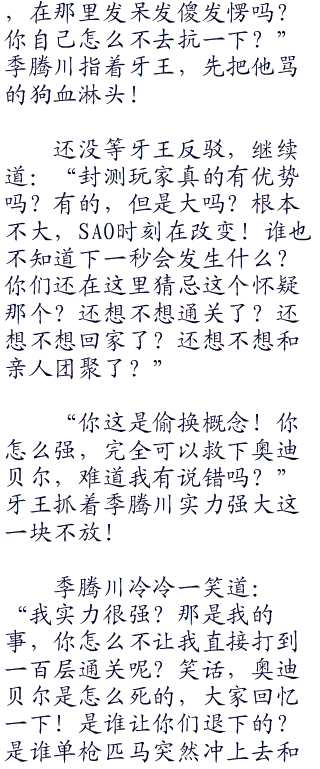 ，在那里发呆发傻发愣吗？
你自己怎么不去抗一下？”
季腾川指着牙王，先把他骂
的狗血淋头！
还没等牙王反驳，继续
道：“封测玩家真的有优势
吗？有的，但是大吗？根本
不大，SAO时刻在改变！谁也
不知道下一秒会发生什么？
你们还在这里猜忌这个怀疑
那个？还想不想通关了？还
想不想回家了？还想不想和
亲人团聚了？”
“你这是偷换概念！你
怎么强，完全可以救下奥迪
贝尔，难道我有说错吗？”
牙王抓着季腾川实力强大这
一块不放！
季腾川冷冷一笑道：
“我实力很强？那是我的
事，你怎么不让我直接打到
一百层通关呢？笑话，奥迪
贝尔是怎么死的，大家回忆
一下！是谁让你们退下的？
是谁单枪匹马突然冲上去和